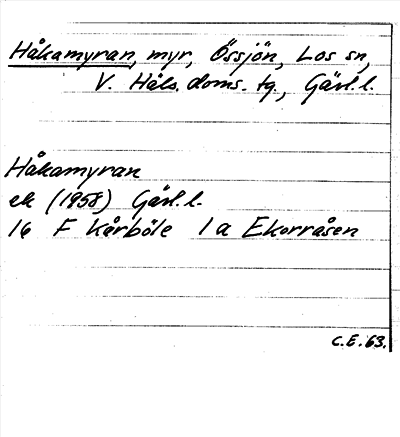 Håkamyran, myr, Össjön, Los sn,
V. Häls. doms. tg., Gävl. l.
Håkamyran
ek (1958) Gävl. l.
16 F Kårböle 1 a Ekorråsen
C.E. '63.